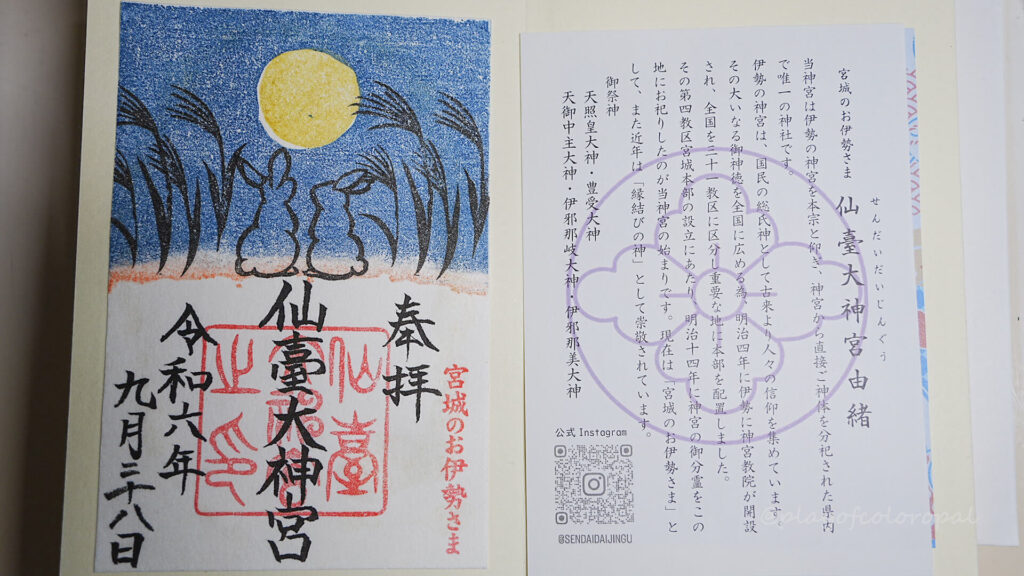 宮城のお伊勢さま
奉拝
仙臺大神宮
令和六年
九月二十八日
仙臺
之印
宮城のお伊勢さま
せんだいだいじんぐう
仙臺大神宮由緒
当神宮は伊勢の神宮を本宗と仰ぎ、神宮から直接ご神体を分祀された県内
で唯一の神社です。
伊勢の神宮は、国民の総氏神として古来より人々の信仰を集めています。
その大いなる御神徳を全国に広める為、明治四年に伊勢に神宮教院が開設
され、全国を三十一教区に区分し重要な地に本部を配置しました。
その第四教区宮城本部の設立にあたり、明治十四年に神宮の御分霊をこの
地にお祀りしたのが当神宮の始まりです。現在は「宮城のお伊勢さま」と
して、また近年は「縁結びの神」として崇敬されています。
御祭神
天照皇大神・豊受大神
天御中主大神・伊邪那岐大神・伊邪那美大神
公式 Instagram
@SENDAIDAIJINGU
@playofcoloropal